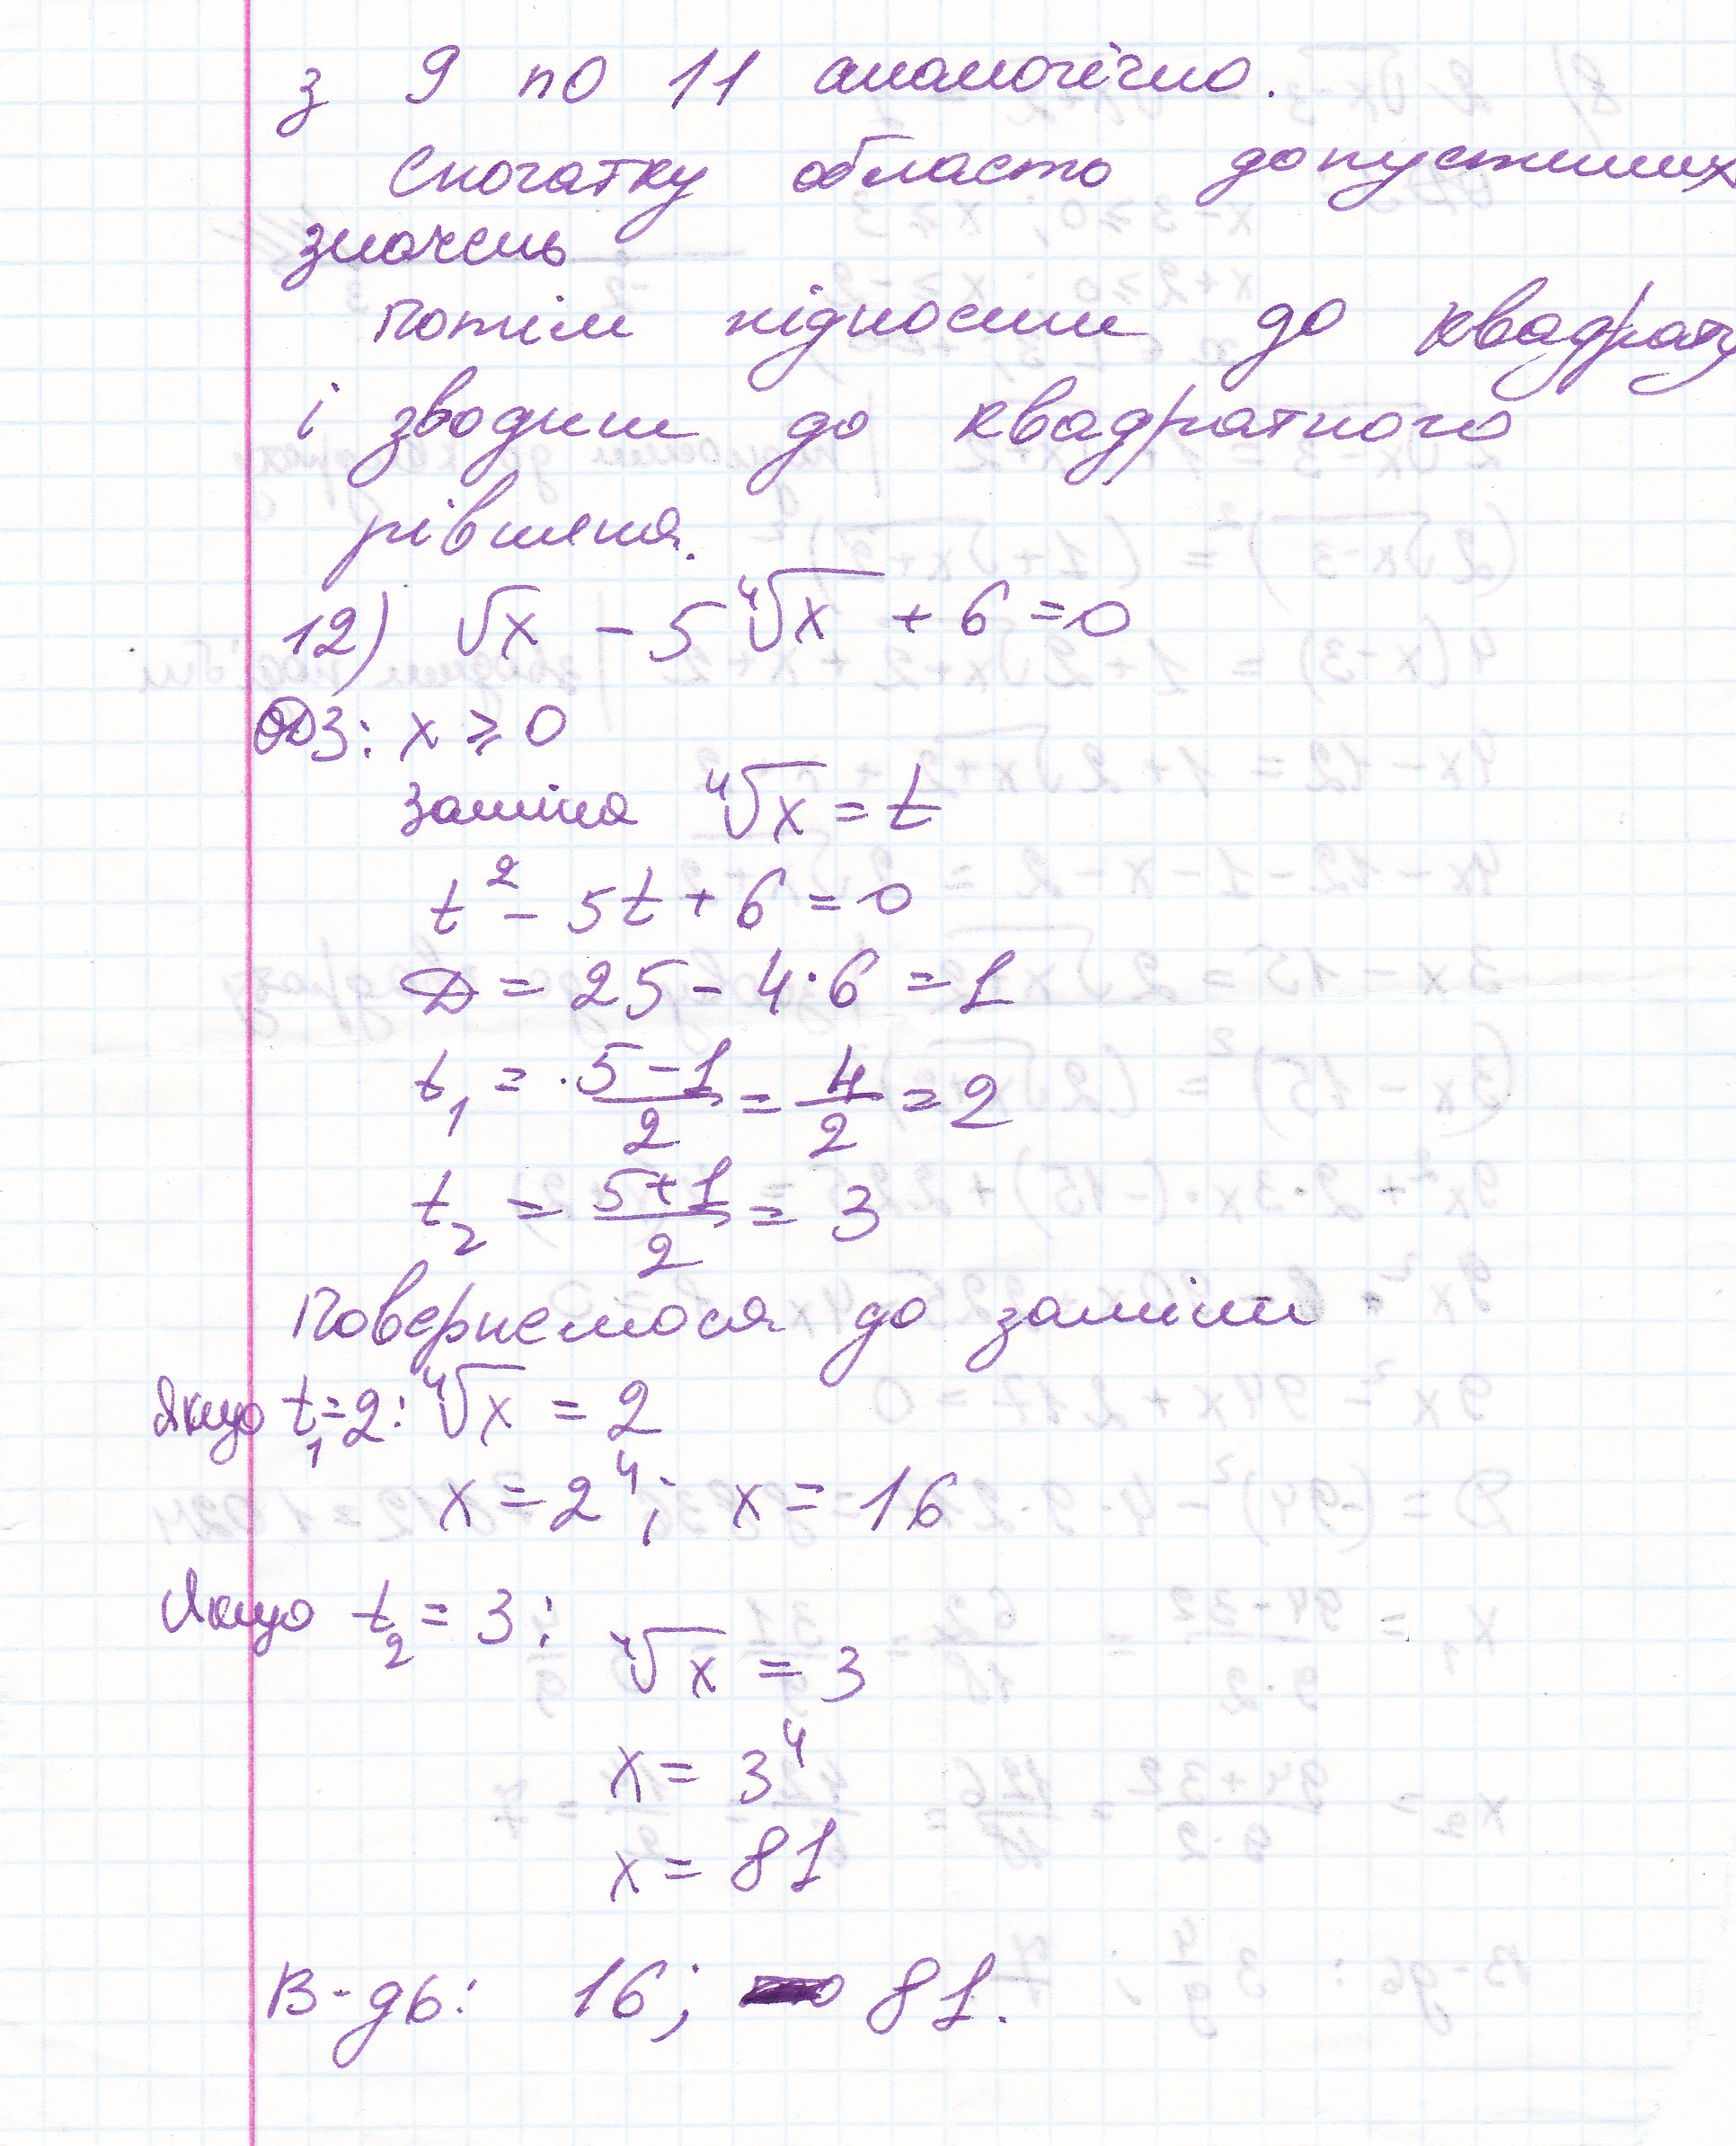 з 9 по 11 аналогічно.
Спочатку область допустимих
значень
Потім підносим до квадрату
і зводим до квадратного
рівняня.
12) √x - 5 ⁴√x + 6 = 0
ОДЗ: x ⩾ 0
Заміна ⁴√x = t
t² - 5t + 6 = 0
D = 25 - 4·6 = 1
t₁ = (5-1)/2 = 4/2 = 2
t₂ = (5+1)/2 = 3
Повернемося до заміни
Якщо t₁=2: ⁴√x = 2
x = 2⁴; x = 16
Якщо t₂ = 3:
⁴√x = 3
x = 3⁴
x = 81
В-дь: 16; 81.